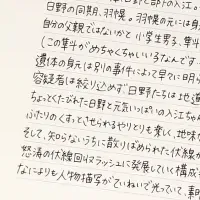 日野の同期、羽幌。羽幌の元には自
自分の父親ではないかと 小学生男子、隼斗
(この隼斗がめちゃくちゃいいるなんです。
遺体の身元は別の事件によって早々に明ら
容疑者は絞り込めず 日野たちは地道
ちょっとくたびれた日野と元気いっぱいの入江ちゃん
ふたりのくすっとさせられるやりとりも楽しく、地味
そして、知らないうちに散りばめられた伏線が
怒涛の伏線回収ラッシュに発展していく構成
なにより人物描写がていねいで光っていて、事